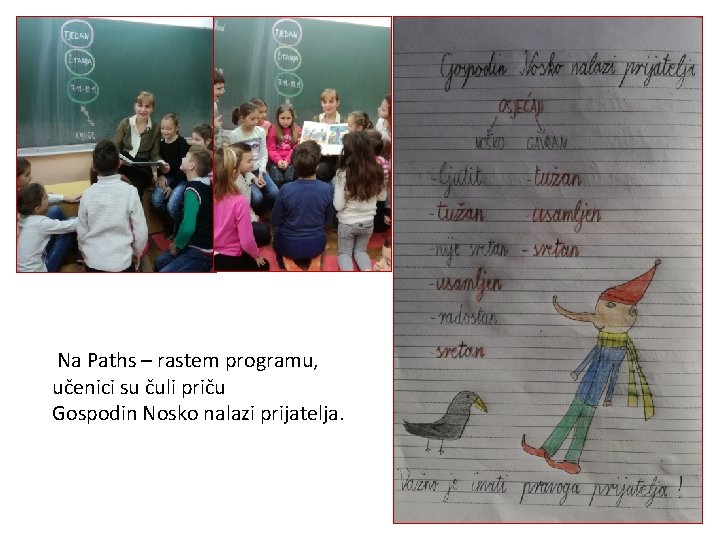 TJEDAN
ČITANJA
7.11.-11.11.
KNJIGE
TJEDAN
ČITANJA
7.11.-11.11.
Gospodin Nosko nalazi prijatelja
OSJEĆAJI
NOŠKO GAVRAN
- ljutit - tužan
- tužan - usamljen
- nije sretan - sretan
- usamljen
- radostan
sretan
Važno je imati pravoga prijatelja!
Na Paths – rastem programu,
učenici su čuli priču
Gospodin Nosko nalazi prijatelja.